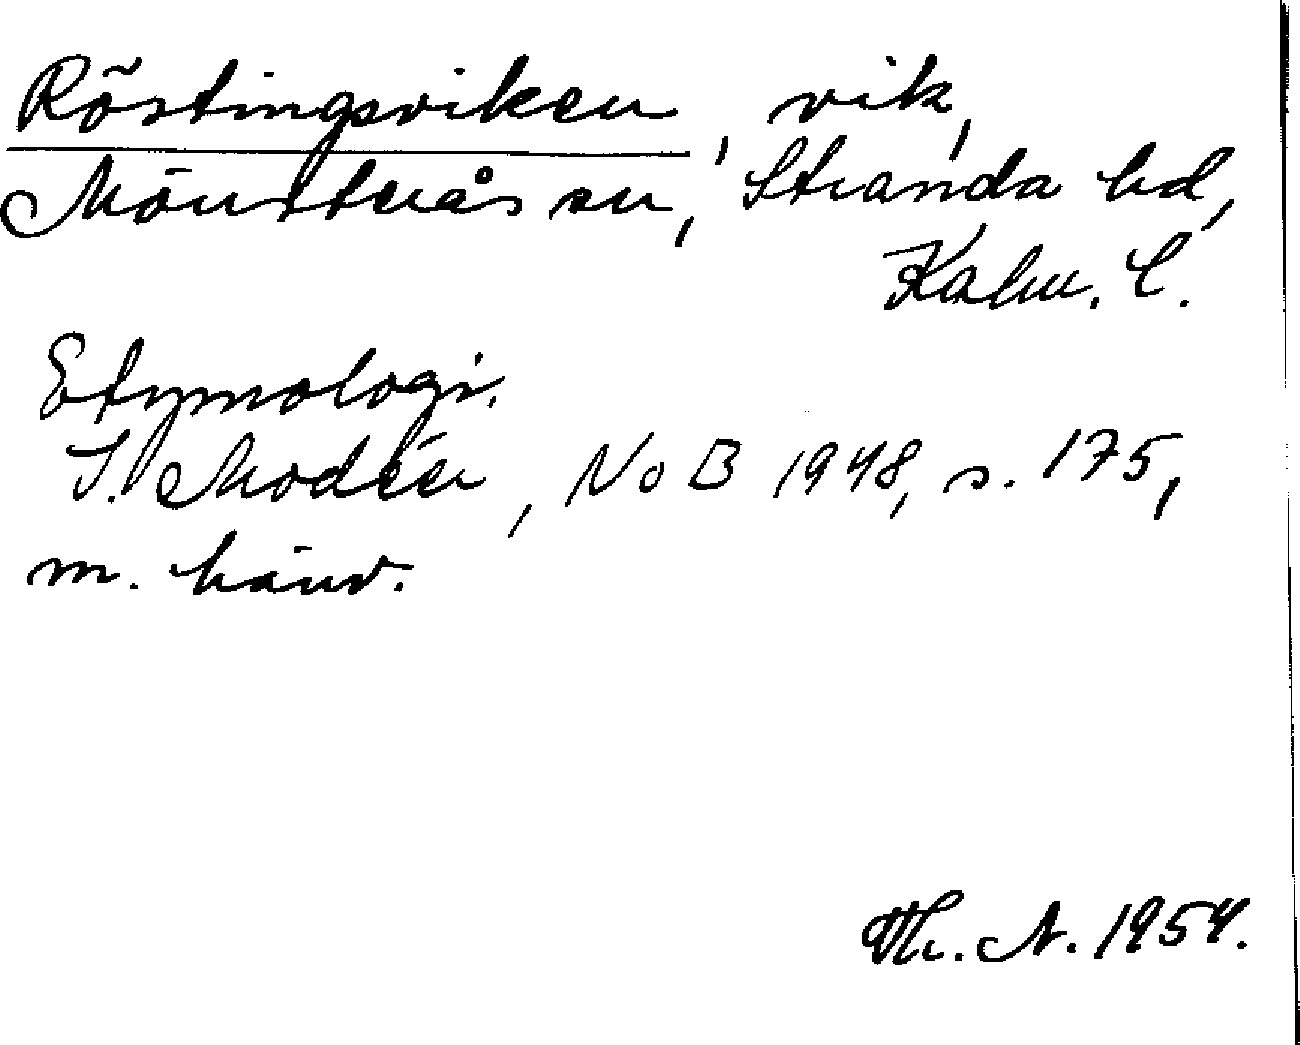 Röstingsviken, vik,
Mönsterås sn, Stranda hd,
Kalm. l.
Etymologi.
I. Modéer, NoB 1948, s. 175,
m. hänv.
Th. N. 1954.